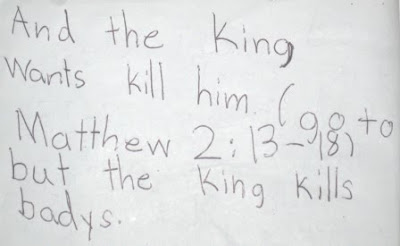 And the King
Wants kill him. (go to
Matthew 2:13-18)
but the King kills
badys.